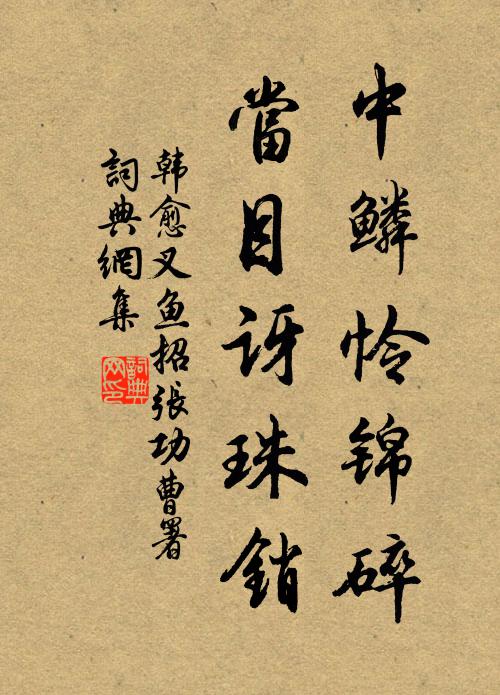 中鳞怜锦碎
當目訝珠銷
韩愈叉鱼招張功曹署
詞典網集
詞典網印